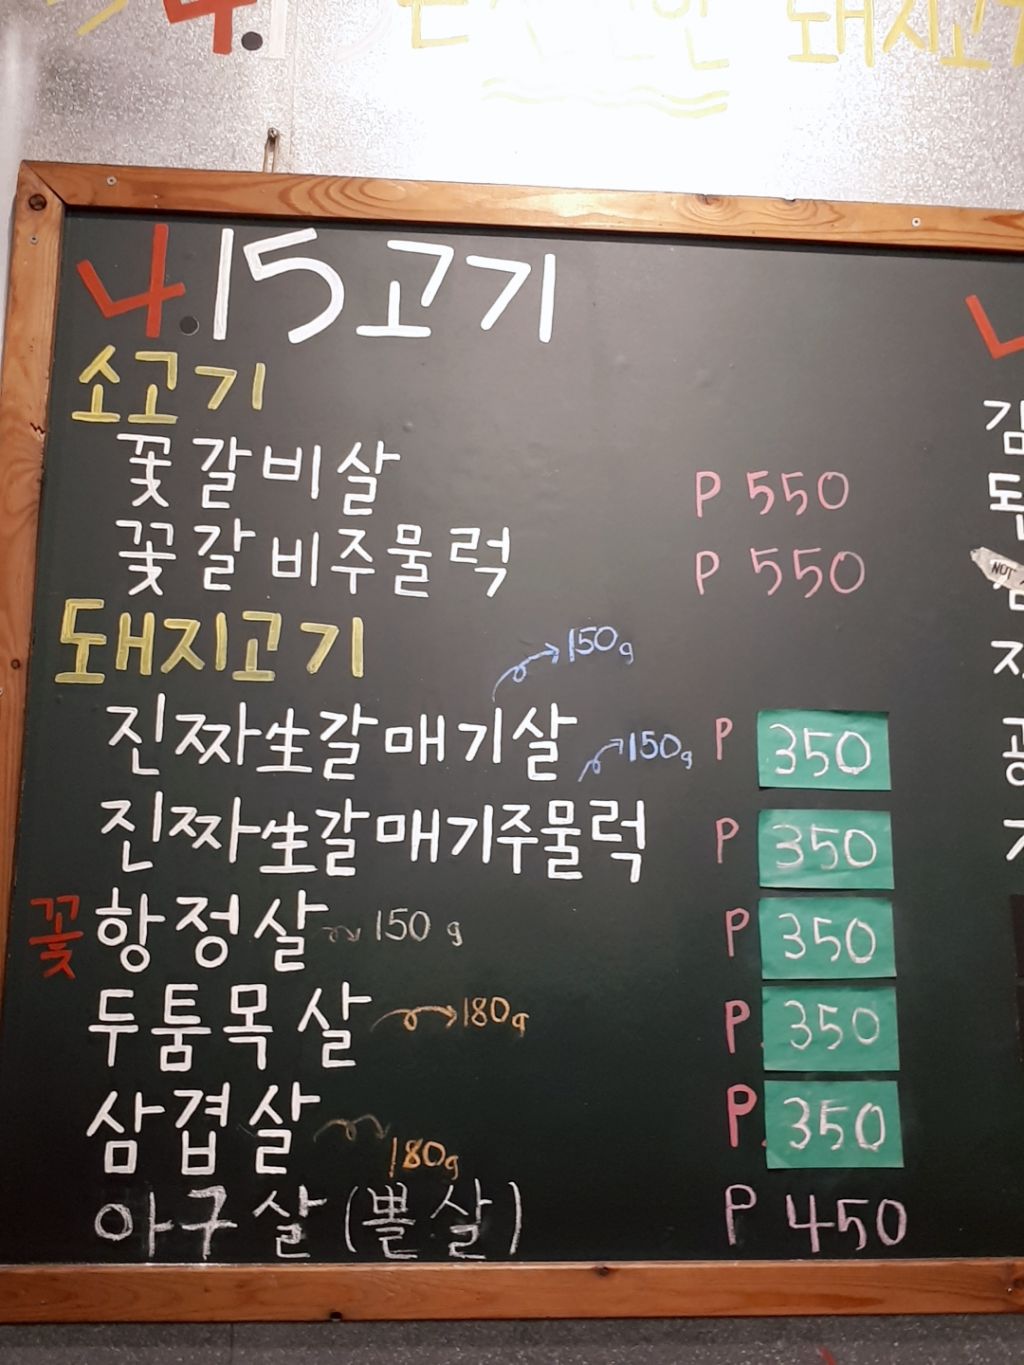 돼지고
ㄴ.15고기
소고기
꽃갈비살 P 550
꽃갈비주물럭 P 550
돼지고기
진짜生갈매기살 150g P 350
진짜生갈매기주물럭 150g P 350
꽃항정살 150g P 350
두툼목살 180g P 350
삼겹살 180g P 350
아구살(뽈살) P 450
NOT